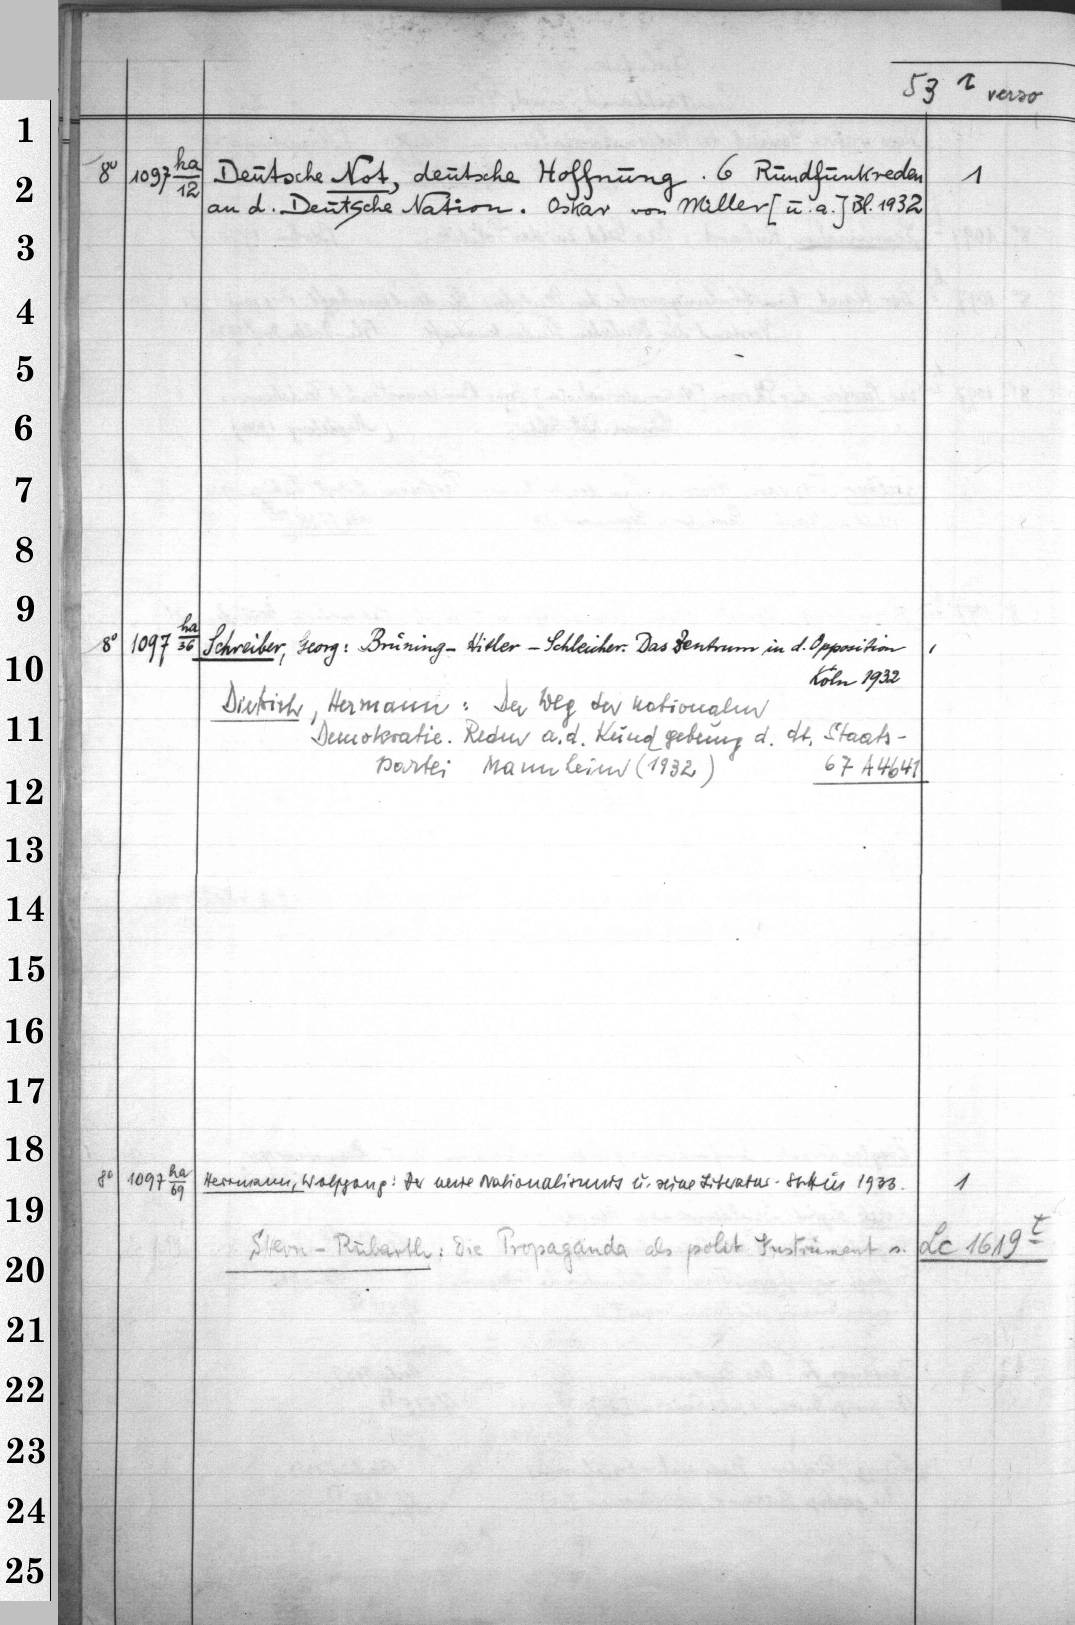 53 r verso
1
2
3
4
5
6
7
8
9
10
11
12
13
14
15
16
17
18
19
20
21
22
23
24
25
8° 1097 ha/12 Deutsche Not, deutsche Hoffnung. 6 Rundfunkreden 1
an d. Deutsche Nation. Oskar von Miller [u. a.] Bl. 1932
8° 1097 ha/36 Schreiber, Georg: Brüning - Hitler - Schleicher. Das Zentrum in d. Opposition
Köln 1932
Dietrich, Hermann: Der Weg der nationalen
Demokratie. Reden a. d. Kundgebung d. dt. Staats-
partei Mannheim (1932) 67 A 4641
8° 1097 ha/69 Herrmann, Wolfgang: Der neue Nationalismus u. seine Literatur. Stettin 1933. 1
Stern-Rubarth: Die Propaganda als polit Instrument s. Lc 1619 t